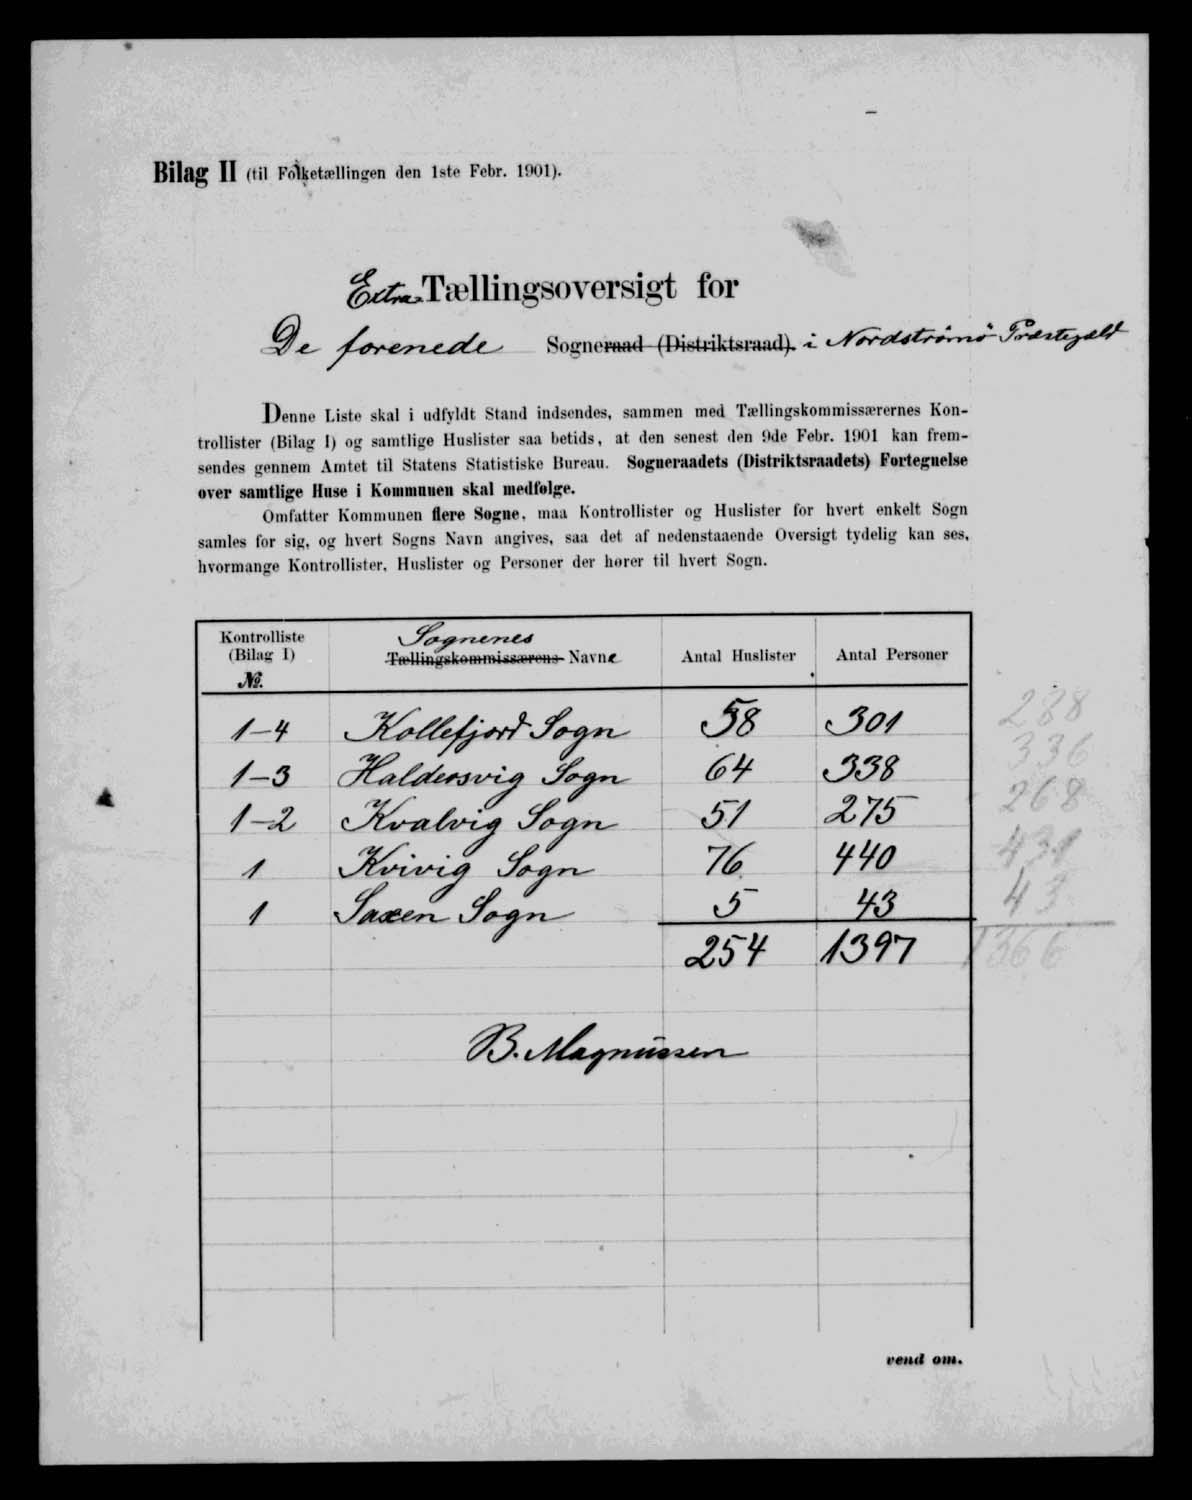 Bilag II (til Folketællingen den 1ste Febr. 1901).
Extra Tællingsoversigt for
De forenede Sogneraad (Distriktsraad). i Nordstrømø Præstegæld
Denne Liste skal i udfyldt Stand indsendes, sammen med Tællingskommissærernes Kon-
trollister (Bilag I) og samtlige Huslister saa betids, at den senest den 9de Febr. 1901 kan frem-
sendes gennem Amtet til Statens Statistiske Bureau. Sogneraadets (Distriktsraadets) Fortegnelse
over samtlige Huse i Kommunen skal medfølge.
Omfatter Kommunen flere Sogne, maa Kontrollister og Huslister for hvert enkelt Sogn
samles for sig, og hvert Sogns Navn angives, saa det af nedenstaaende Oversigt tydelig kan ses,
hvormange Kontrollister, Huslister og Personer der hører til hvert Sogn.
Kontrolliste (Bilag I) №. Sognenes Tællingskommissærens Navne Antal Huslister Antal Personer
1-4 Kollefjord Sogn 58 301 288
1-3 Haldersvig Sogn 64 338 336
1-2 Kvalvig Sogn 51 275 268
1 Kvivig Sogn 76 440 431
1 Saxen Sogn 5 43 43
254 1397 1366
B. Magnussen
vend om.